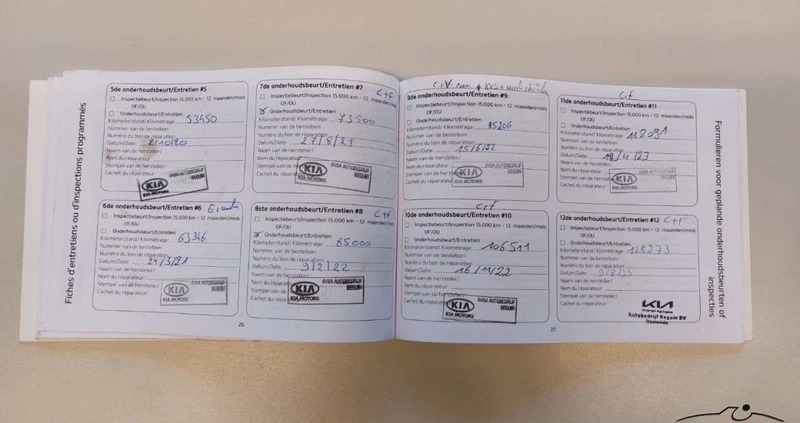 Fiches d'entretiens ou d'inspections programmés
5de onderhoudsbeurt/Entretien #5
Inspectiebeurt/Inspection 15.000 km - 12 maanden/mois
OF/OU
Onderhoudsbeurt/Entretien
Kilometerstand/ Kilométrage 53450
Nummer van de bestelbon
Numéro du bon de réparation
Datum/Date 2/10/20
Naam van de hersteller/
Nom du réparateur
Stempel van de hersteller/
Cachet du réparateur
KIA
KIA MOTORS
BVBA AUTOBEDRIJF
BEGUIN
6de onderhoudsbeurt/Entretien #6
Inspectiebeurt/Inspection 15.000 km - 12 maanden/mois
OF/OU
Onderhoudsbeurt/Entretien
Kilometerstand/ Kilométrage 63346
Nummer van de bestelbon
Numéro du bon de réparation
Datum/Date 24/3/21
Naam van de hersteller/
Nom du réparateur
Stempel van de hersteller/
Cachet du réparateur
KIA
KIA MOTORS
BVBA AUTOBEDRIJF
BEGUIN
7de onderhoudsbeurt/Entretien #7
C+F
Inspectiebeurt/Inspection 15.000 km - 12 maanden/mois
OF/OU
Onderhoudsbeurt/Entretien
Kilometerstand/ Kilométrage 73500
Nummer van de bestelbon
Numéro du bon de réparation
Datum/Date 27/8/21
Naam van de hersteller/
Nom du réparateur
Stempel van de hersteller/
Cachet du réparateur
KIA
KIA MOTORS
BVBA AUTOBEDRIJF
BEGUIN
8ste onderhoudsbeurt/Entretien #8
C+F
Inspectiebeurt/Inspection 15.000 km - 12 maanden/mois
OF/OU
Onderhoudsbeurt/Entretien
Kilometerstand/ Kilométrage 85000
Nummer van de bestelbon
Numéro du bon de réparation
Datum/Date 9/2/22
Naam van de hersteller/
Nom du réparateur
Stempel van de hersteller/
Cachet du réparateur
KIA
KIA MOTORS
BVBA AUTOBEDRIJF
BEGUIN
26
9de onderhoudsbeurt/Entretien #9
Inspectiebeurt/Inspection 15.000 km - 12 maanden/mois
OF/OU
Onderhoudsbeurt/Entretien
Kilometerstand/ Kilométrage 95206
Nummer van de bestelbon
Numéro du bon de réparation
Datum/Date 15/6/22
Naam van de hersteller/
Nom du réparateur
Stempel van de hersteller/
Cachet du réparateur
KIA
KIA MOTORS
BVBA AUTOBEDRIJF
BEGUIN
C+F
10de onderhoudsbeurt/Entretien #10
Inspectiebeurt/Inspection 15.000 km - 12 maanden/mois
OF/OU
Onderhoudsbeurt/Entretien
Kilometerstand/ Kilométrage 106511
Nummer van de bestelbon
Numéro du bon de réparation
Datum/Date 16/11/22
Naam van de hersteller/
Nom du réparateur
Stempel van de hersteller/
Cachet du réparateur
KIA
KIA MOTORS
BVBA AUTOBEDRIJF
BEGUIN
C+F
11de onderhoudsbeurt/Entretien #11
Inspectiebeurt/Inspection 15.000 km - 12 maanden/mois
OF/OU
Onderhoudsbeurt/Entretien
Kilometerstand/ Kilométrage 118091
Nummer van de bestelbon
Numéro du bon de réparation
Datum/Date
Naam van de hersteller/
Nom du réparateur
Stempel van de hersteller/
Cachet du réparateur
KIA
KIA MOTORS
BVBA AUTOBEDRIJF
BEGUIN
12de onderhoudsbeurt/Entretien #12 C+F
Inspectiebeurt/Inspection 15.000 km - 12 maanden/mois
OF/OU
Onderhoudsbeurt/Entretien
Kilometerstand/ Kilométrage 128273
Nummer van de bestelbon
Numéro du bon de réparation
Datum/Date
Naam van de hersteller/
Nom du réparateur
Stempel van de hersteller/
Cachet du réparateur
KIA
Autobedrijf Beguin BV
Oostende
27
Formulieren voor geplande onderhoudsbeurten of
inspecties